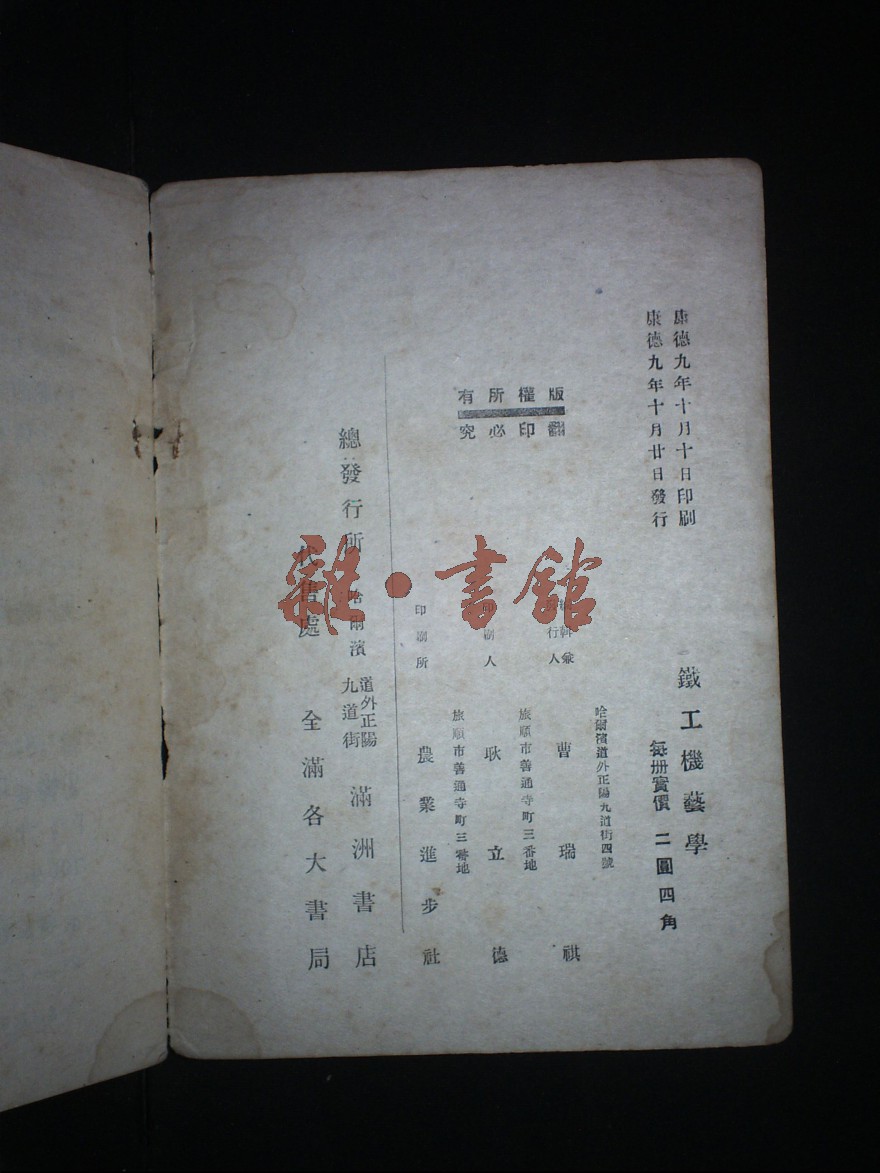 康德九年十月十日印刷
康德九年十月廿日發行
鐵工機藝學
每册實價 二圓四角
版權所有
翻印必究
哈爾濱道外正陽九道街四號
編輯兼
發行人
曹瑞祺
旅順市善通寺町三番地
印刷人 耿立德
旅順市善通寺町三番地
印刷所 農業進步社
總發行所 哈爾濱
道外正陽
九道街
滿洲書店
代售處 全滿各大書局
雜·書館